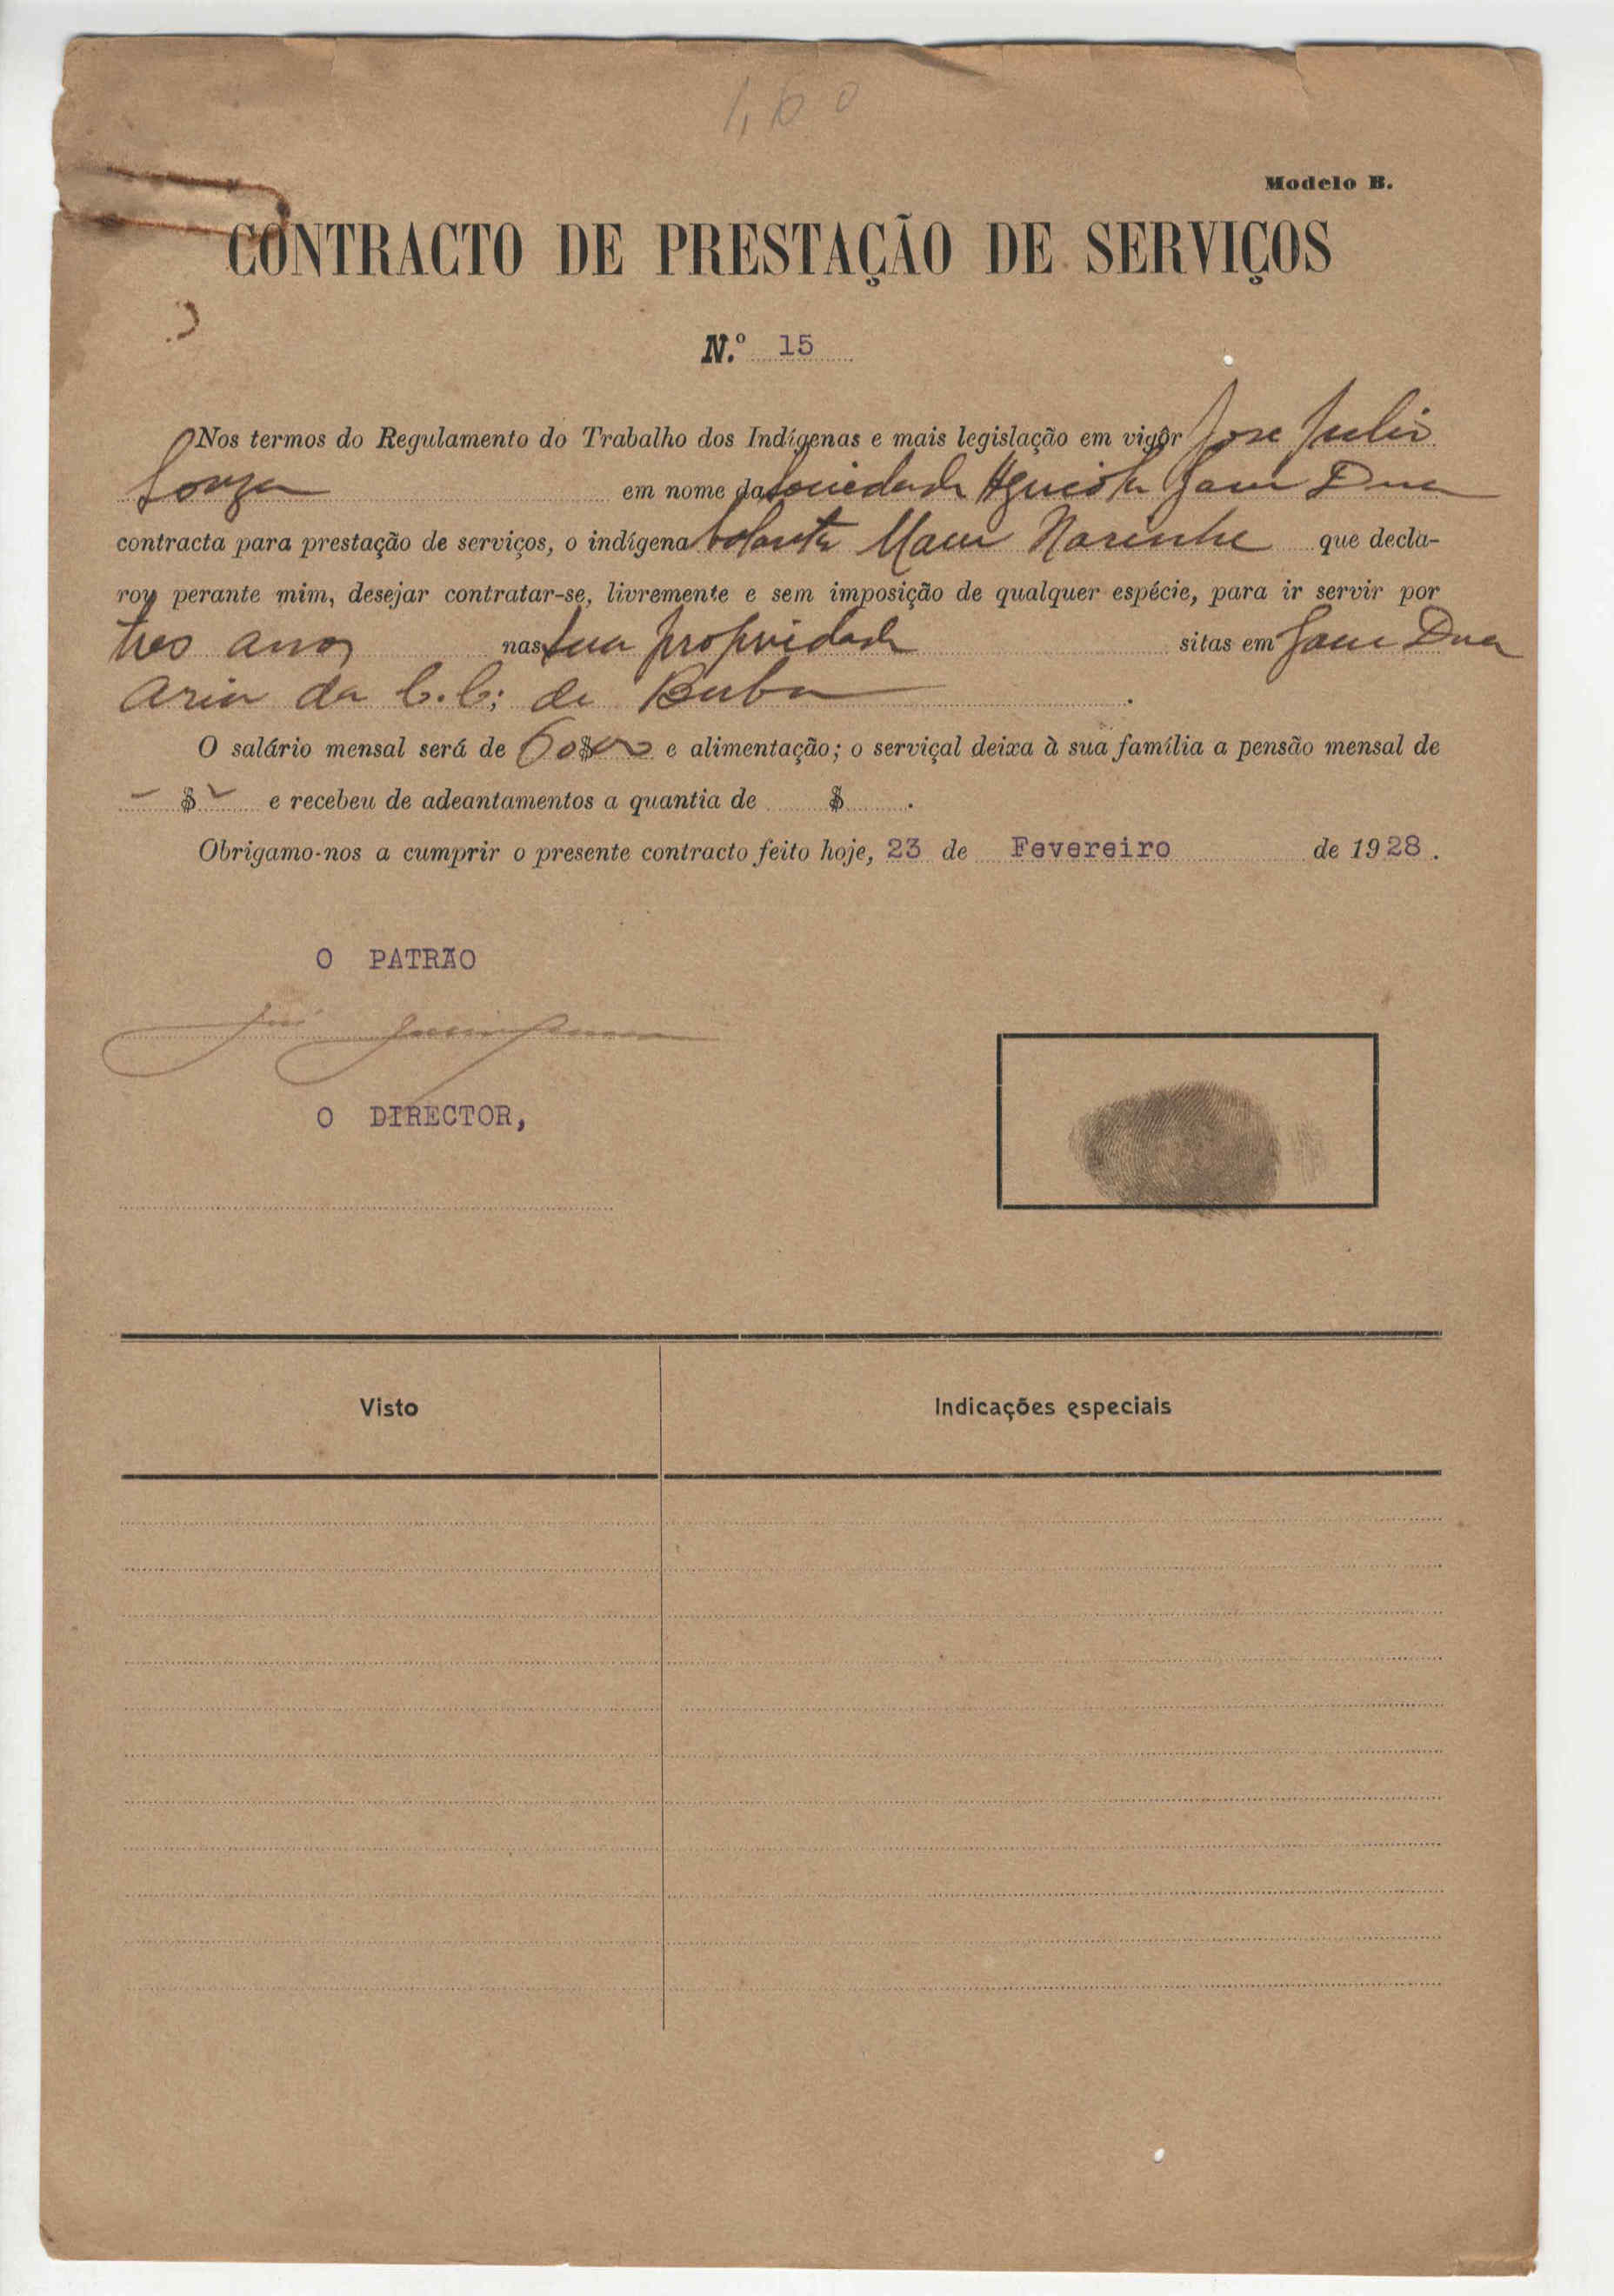 1,60
Modelo B.
CONTRACTO DE PRESTAÇÃO DE SERVIÇOS
N.º 15
Nos termos do Regulamento do Trabalho dos Indígenas e mais legislação em vigôr Jose Julio
Souza em nome da Sociedade Agricola Gam Dua
contracta para prestação de serviços, o indígena que decla-
rou perante mim, desejar contratar-se, livremente e sem imposição de qualquer espécie, para ir servir por
tres anos nas sua propriedade sitas em Gam Dua
Aria da C.C; de Buba
O salário mensal será de 60$00 e alimentação; o serviçal deixa à sua família a pensão mensal de
- $ - e recebeu de adeantamentos a quantia de $ .
Obrigamo-nos a cumprir o presente contracto feito hoje, 23 de Fevereiro de 1928.
O PATRÃO
O DIRECTOR,
Visto Indicações especiais